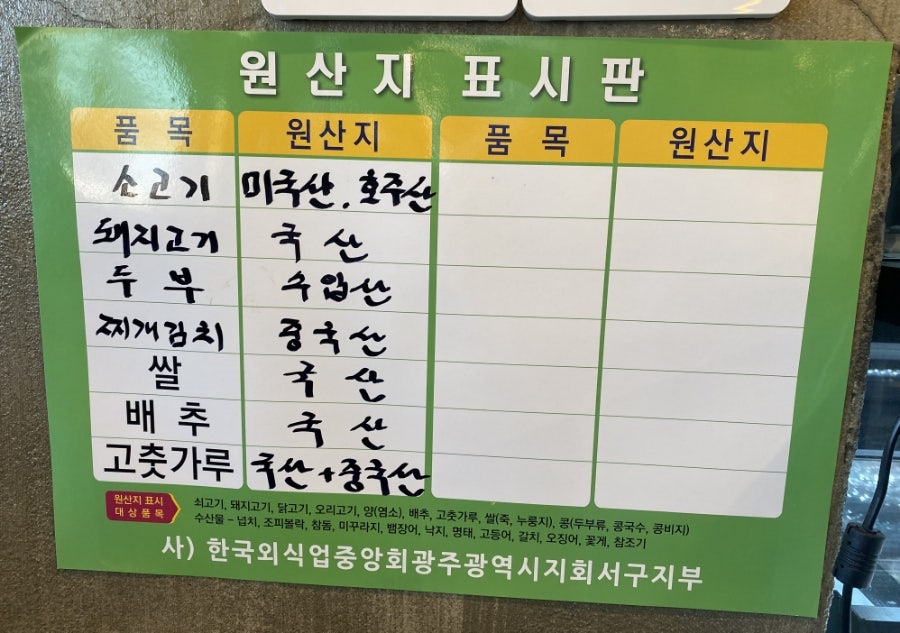 원산지 표시판
품 목 원산지 품 목 원산지
소고기 미국산, 호주산
돼지고기 국 산
두 부 수입산
찌개김치 중국산
쌀 국 산
배 추 국 산
고춧가루 국산+중국산
원산지 표시
대 상 품 목
쇠고기, 돼지고기, 닭고기, 오리고기, 양(염소), 배추, 고춧가루, 쌀(죽, 누룽지), 콩(두부류, 콩국수, 콩비지)
수산물 – 넙치, 조피볼락, 참돔, 미꾸라지, 뱀장어, 낙지, 명태, 고등어, 갈치, 오징어, 꽃게, 참조기
사) 한국외식업중앙회광주광역시지회서구지부